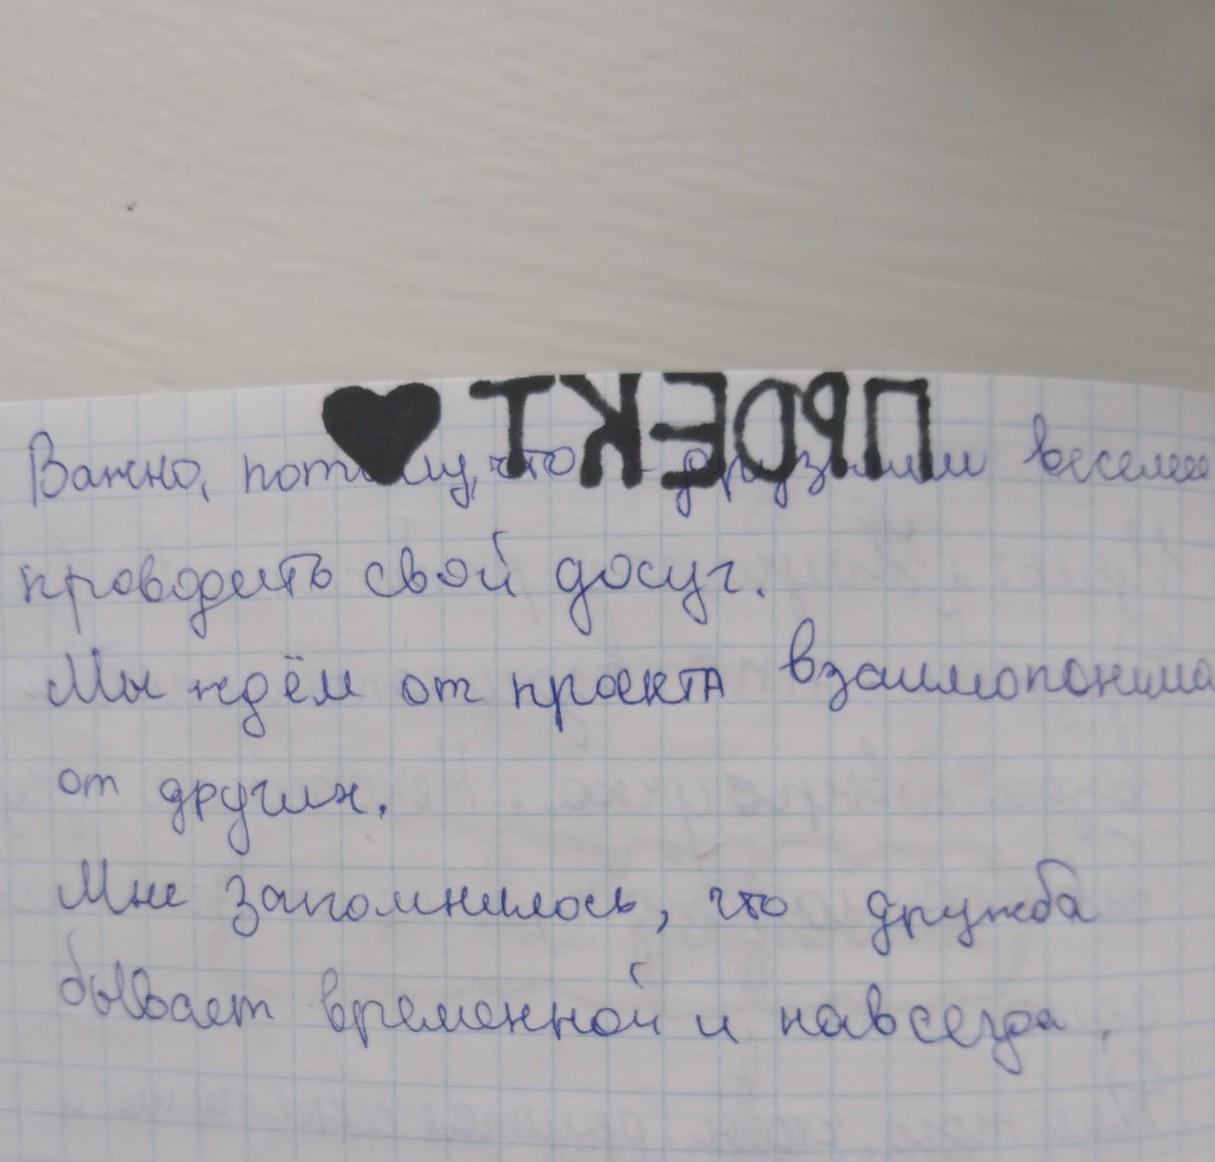 ПРОЕКТ
Важно, потому, что с друзьями веселее
проводить свой досуг.
Мы ждём от проекта взаимопонима
от других.
Мне запомнилось, что дружба
бывает временной и навсегда.